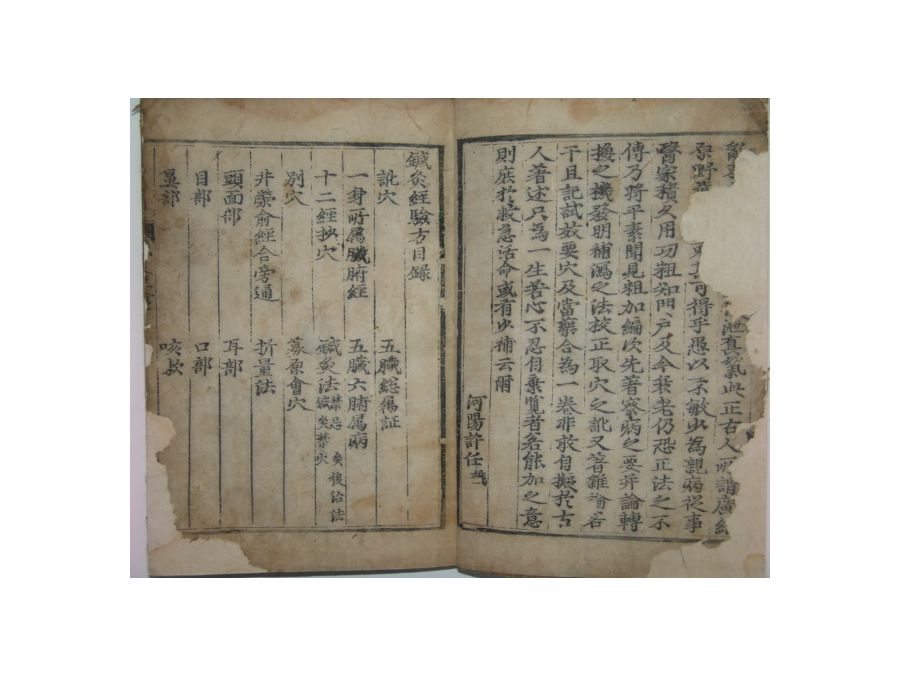 泄真氣此正古人所謂廣絡
原野
得乎愚以不敏少為親病從事
醫家積久用功粗知門戶及今衰老仍恐正法之不
傳乃將平素聞見粗加編次先著察病之要幷論轉
換之機發明補瀉之法校正取穴之訛又著雜論若
干且記試效要穴及當藥合為一卷非敢自擬於古
人著述只為一生苦心不忍自棄覽者各能加之意
則庶於救急活命或有少補云爾
河陽許任識
鍼灸經驗方目錄
訛穴 五臟總屬証
一身所屬臟腑經 五臟六腑屬病
十二經抄穴 鍼灸法 禁忌 鍼灸禁穴 灸後治法
別穴 募原會穴
井滎俞經合旁通 折量法
頭面部 耳部
目部 口部
鼻部 咳嗽